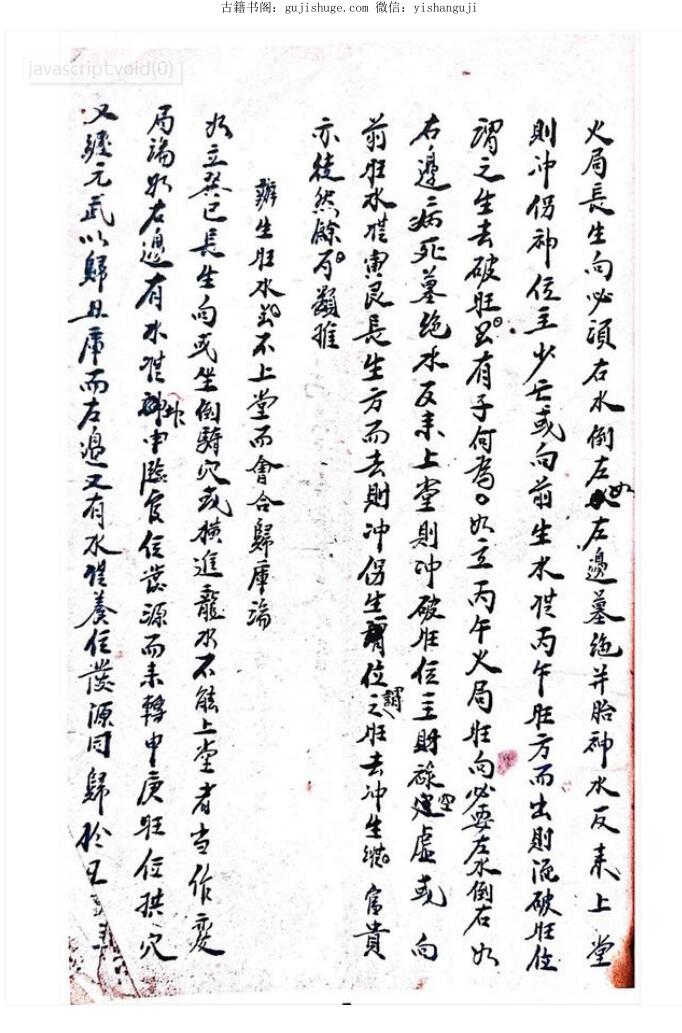 古籍书阁：gujishuge.com 微信：yishanguji
javascript:void(0)
火局長生向必須右水倒左如左邊墓絶并胎神水反来上堂
則冲傷神位主少亡或向前生水從丙午旺方而出則流破旺位
謂之生去破旺雖有子何為如立丙午火局旺向必要左水倒右如
右邊病死墓絶水反来上堂則冲破旺位主財祿空虛或向
前旺水從寅艮長生方而去則冲傷生位謂之旺去冲生縱富貴
亦徒然餘可類推
辦生旺水不上堂而會合歸庫論
如立巽巳長生向或坐倒騎穴或横進龍水不能上堂者当作変
局論如右邊有水從坤申臨官位發源而来轉申庚旺位拱穴
又纏元武以歸丑庫而左邊又有水從養位發源同歸於